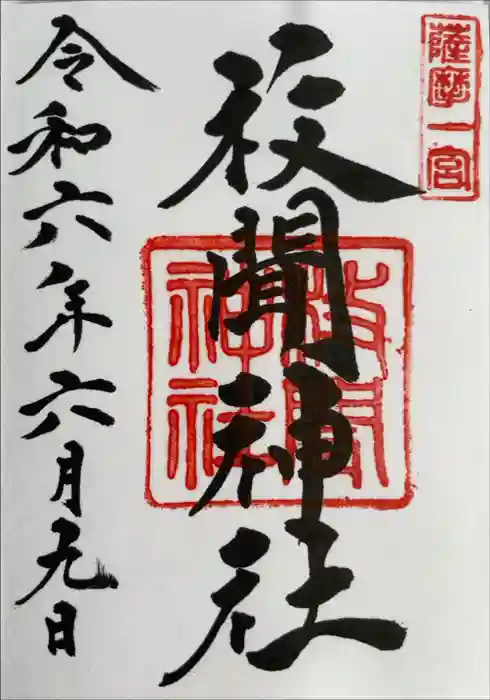 薩摩一宮
枚聞神社
枚聞神社
令和六年六月元日